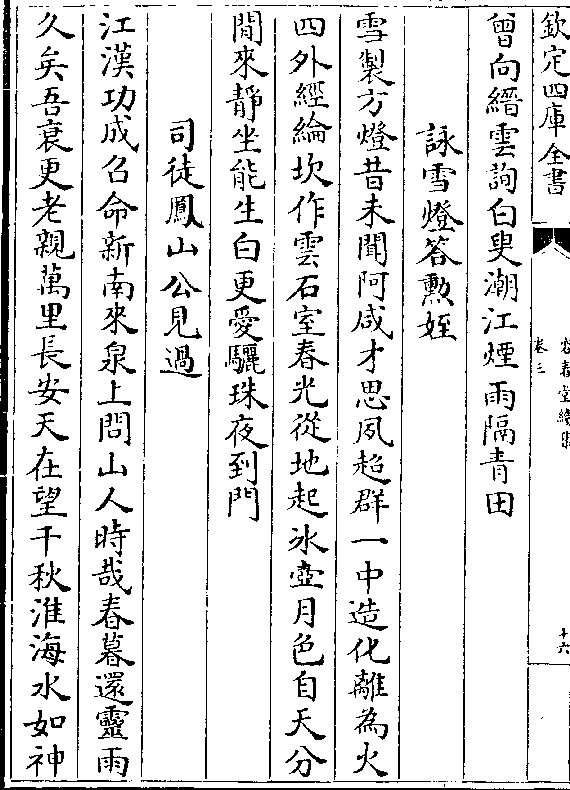 欽定四庫全書
曾向縉雲詢白㬰潮江煙雨隔青田
詠雪燈答勲姪
雪製方燈昔未聞阿咸才思夙超群一中造化離為火
四外經綸坎作雲石室春光從地起冰壺月色自天分
閒來靜坐能生白更愛驪珠夜到門
司徒鳳山公見過
江漢功成召命新南來泉上問山人時哉春暮還靈雨
久矣吾衰更老親萬里長安天在望千秋淮海水如神
容春堂續集
卷三
十六